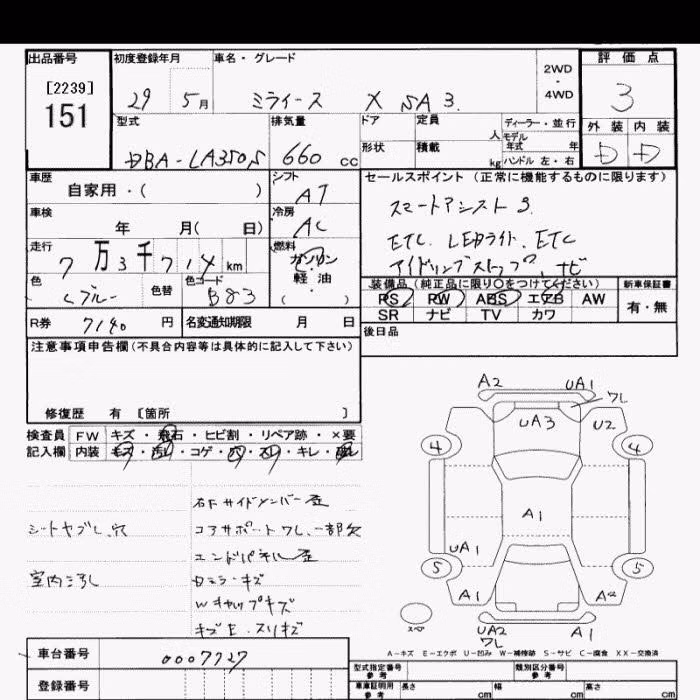 出品番号
[2239]
151
初度登録年月
29 5月
車名・グレード
ミライース X SA 3
2WD
・
4WD
評価点
3
外装 内装
D D
型式
DBA-LA350S
排気量
660 cc
ドア
形状
定員 人
積載 kg
ディーラー・並行
モデル
年式 年
ハンドル 左・右
車歴
自家用・( )
シフト
AT
車検
年 月( 日)
冷房
AC
走行
7万3千714km
燃料
ガソリン
軽油
( ・ )
色
ブルー
色替
色コード
B83
R券 7140 円
名変通知期限 月 日
セールスポイント (正常に機能するものに限ります)
スマートアシスト 3
ETC. LEDライト. ETC
アイドリングストップ. ナビ
装備品 (純正品に限り○をつけてください)
新車保証書
PS PW ABS エアB AW
有・無
SR ナビ TV カワ
後日品
注意事項申告欄(不具合内容等は具体的に記入して下さい)
修復歴 有 [箇所 ]
検査員
記入欄
FW キズ・飛石・ヒビ割・リペア跡・×要
内装 キズ・汚れ・コゲ・穴・スリ・キレ・
シートヤブレ.穴
室内汚れ
右Fサイドメンバー歪
コアサポートワレ.一部欠
エンドパネル歪
Dミラーキズ
Wキャップキズ
キズE.スリキズ
A2 UA1
ワレ
UA3 U2
4 4
A1
UA1
5 5
A1 A2
スペア
UA2 A1
ワレ
A-キズ E-エクボ U-凹み W-補修跡 S-サビ C-腐食 XX-交換済
車台番号
0007727
登録番号
型式指定番号
参考
類別区分番号
参考
車庫証明用
参考
長さ cm 幅 cm 高さ cm